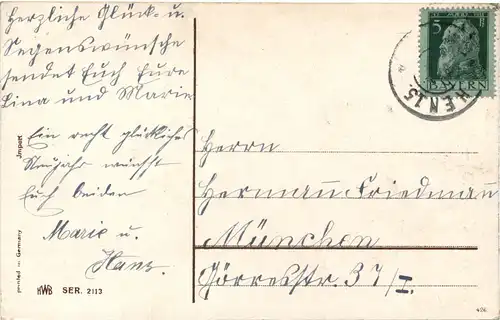 Herzliche Glück- u.
Segenswünsche
sendet Euch Eure
Lina und Marie.
Ein recht glückliches
Neujahr wünscht
Euch beiden
Marie u.
Hans.
Import
printed in Germany
HWB SER. 2113
5
BAYERN
CHEN 15
Herrn
Hermann Friedmann
München
Görresstr. 37/I.
426